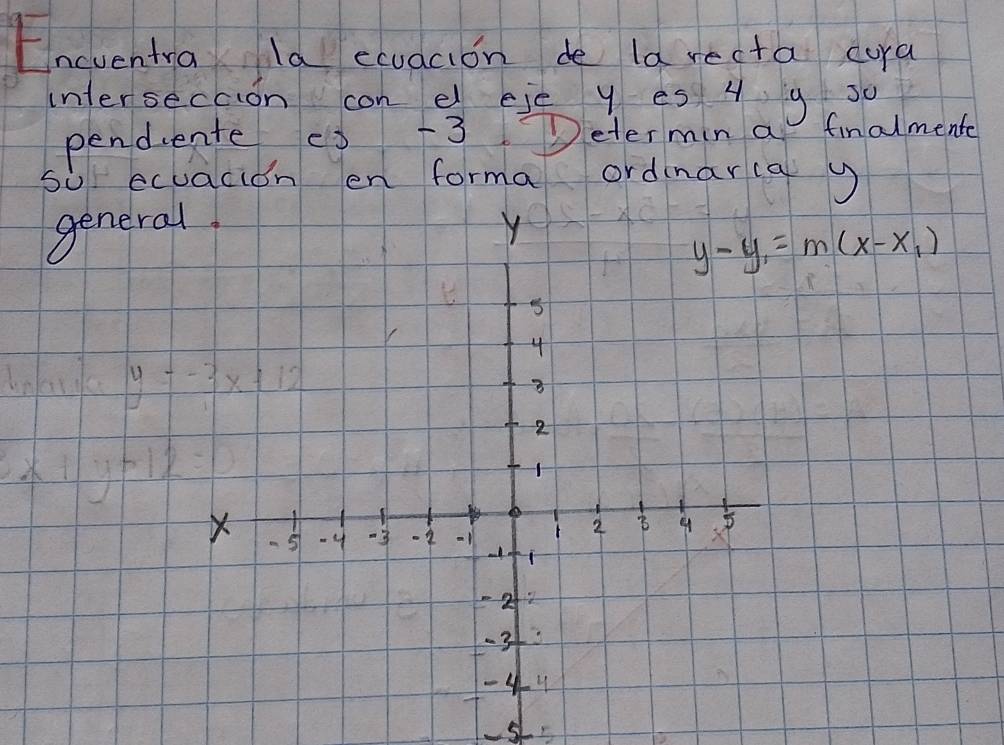 Encuentra la ecuación de la recta cuya
intersección con el eje y es 4 y su
pendiente es -3. Determina finalmente
su ecuación en forma ordinaria y
general.
y-y₁=m(x-x₁)
Y
5
4
3
2
1
X -5 -4 -3 -2 -1 1 2 3 4 5
-1
-2
-3
-4
-5